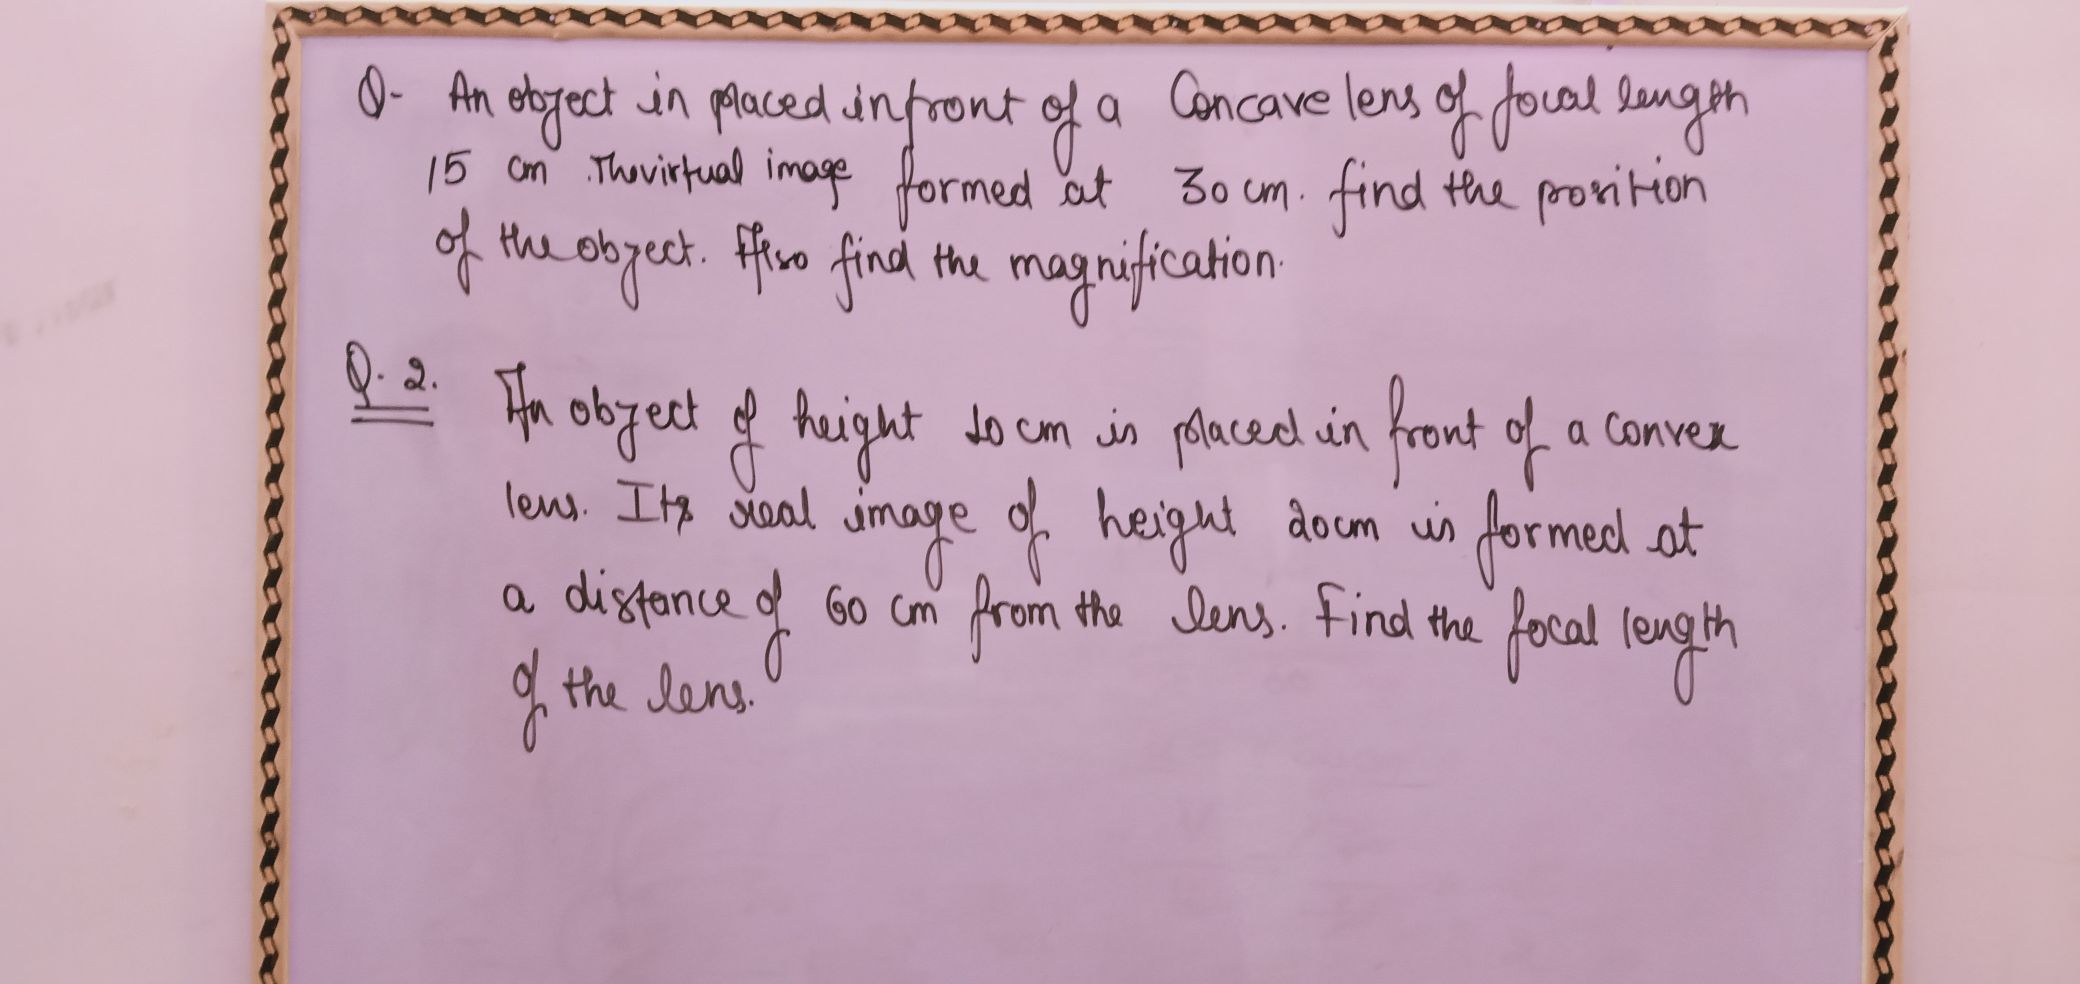 Q- An object is placed infront of a Concave lens of focal length
15 cm . The virtual image formed at 30 cm. find the position
of the object. Also find the magnification.
Q. 2. An object of height 10 cm is placed in front of a convex
lens. Its real image of height 20cm is formed at
a distance of 60 cm from the lens. Find the focal length
of the lens.